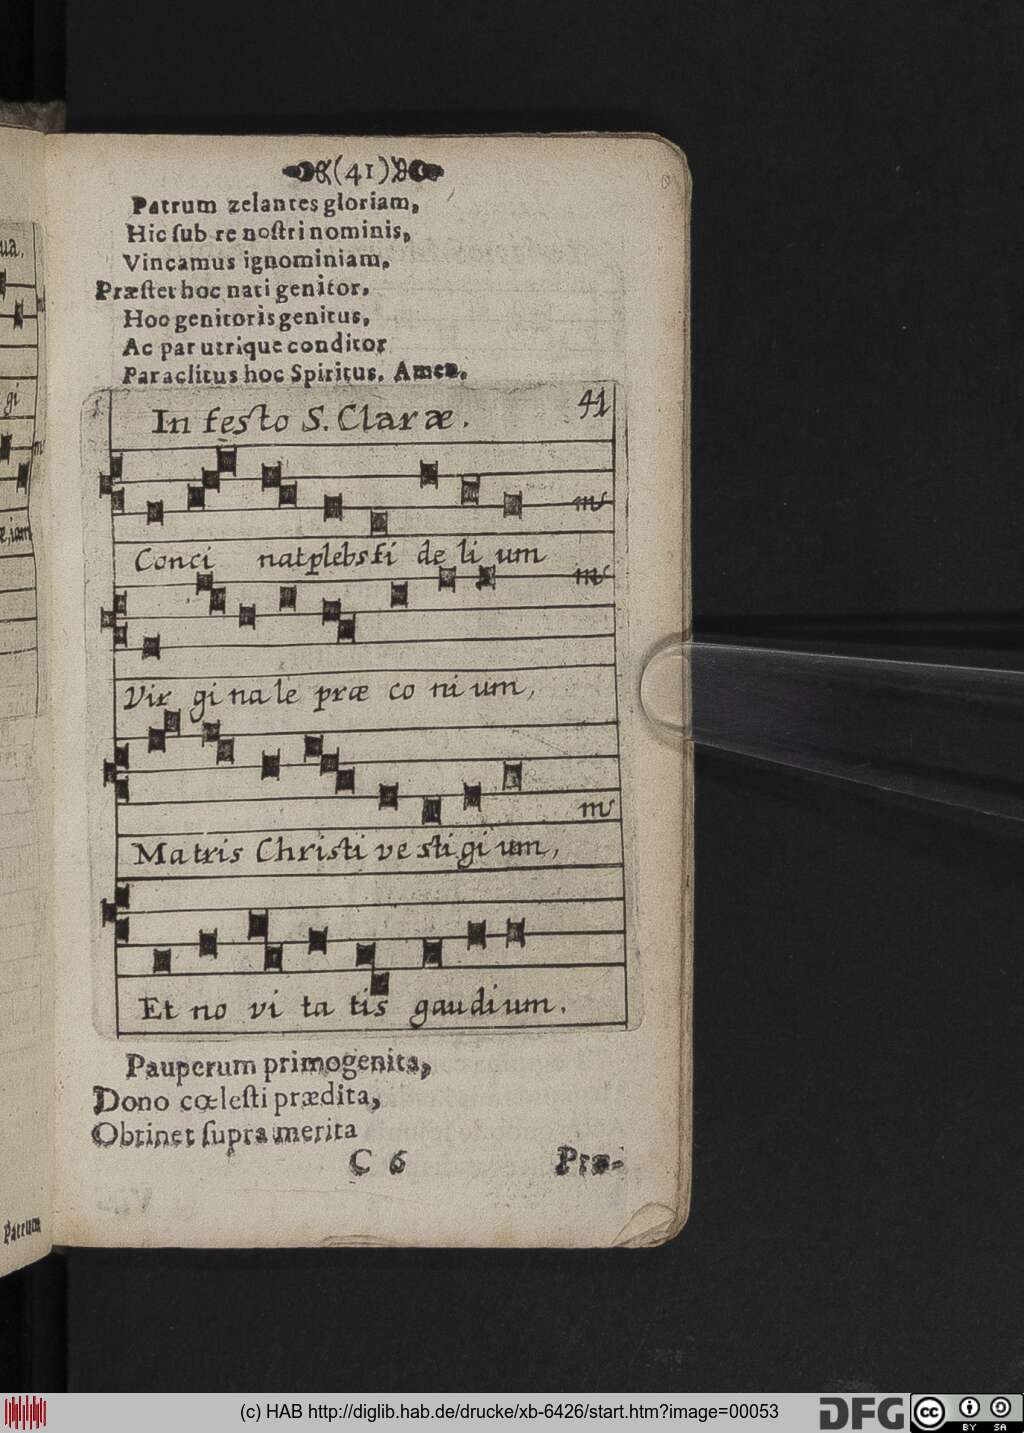 (41)
Patrum zelantes gloriam,
Hic ſub re noſtri nominis,
Vincamus ignominiam,
Præſtet hoc nati genitor,
Hoc genitoris genitus,
Ac par utrique conditor
Paraclitus hoc Spiritus. Amen.
41
In festo S. Claræ.
Conci nat plebs fi de li um
Vir gi na le præ co ni um,
Matris Christi ve sti gi um,
Et no vi ta tis gaudium.
Pauperum primogenita,
Dono cœleſti prædita,
Obtinet ſupra merita
C 6 Præ-
ua,
gi
æ, iam
Patrum
(c) HAB http://diglib.hab.de/drucke/xb-6426/start.htm?image=00053
DFG
cc BY SA